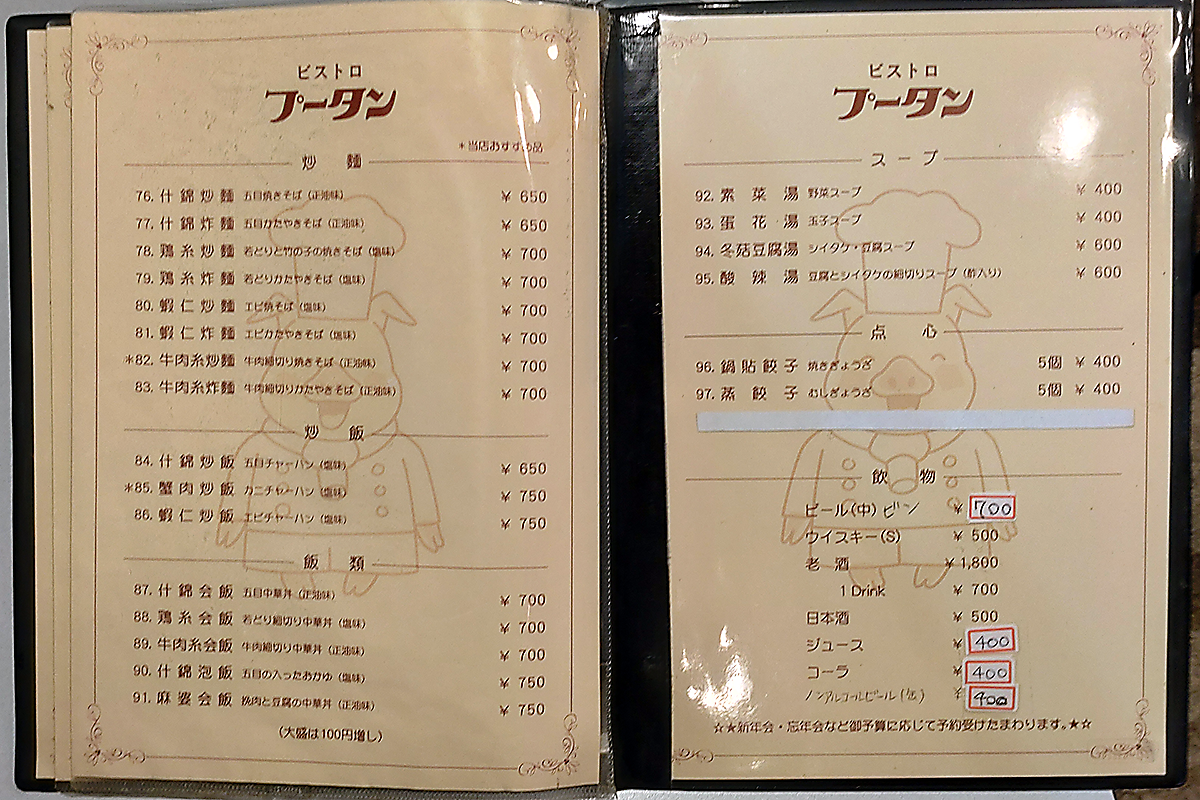 ビストロ
プータン
*当店おすすめ品
炒 麺
76. 什錦炒麺 五目焼きそば (正油味) ¥ 650
77. 什錦炸麺 五目かたやきそば (正油味) ¥ 650
78. 鶏糸炒麺 若どりと竹の子の焼きそば (塩味) ¥ 700
79. 鶏糸炸麺 若どりかたやきそば (塩味) ¥ 700
80. 蝦仁炒麺 エビ焼そば (塩味) ¥ 700
81. 蝦仁炸麺 エビかたやきそば (塩味) ¥ 700
*82. 牛肉糸炒麺 牛肉細切り焼きそば (正油味) ¥ 700
83. 牛肉糸炸麺 牛肉細切りかたやきそば (正油味) ¥ 700
炒 飯
84. 什錦炒飯 五目チャーハン (塩味) ¥ 650
*85. 蟹肉炒飯 カニチャーハン (塩味) ¥ 750
86. 蝦仁炒飯 エビチャーハン (塩味) ¥ 750
飯 類
87. 什錦会飯 五目中華丼 (正油味) ¥ 700
88. 鶏糸会飯 若どり細切り中華丼 (塩味) ¥ 700
89. 牛肉糸会飯 牛肉細切り中華丼 (正油味) ¥ 700
90. 什錦泡飯 五目の入ったおかゆ (塩味) ¥ 750
91. 麻婆会飯 挽肉と豆腐の中華丼 (正油味) ¥ 750
(大盛は100円増し)
ビストロ
プータン
スープ
92. 素菜湯 野菜スープ ¥ 400
93. 蛋花湯 玉子スープ ¥ 400
94. 冬菇豆腐湯 シイタケ・豆腐スープ ¥ 600
95. 酸辣湯 豆腐とシイタケの細切りスープ (酢入り) ¥ 600
点 心
96. 鍋貼餃子 焼きぎょうざ 5個 ¥ 400
97. 蒸餃子 むしぎょうざ 5個 ¥ 400
飲 物
ビール(中) ビン ¥ 700
ウイスキー(S) ¥ 500
老酒 ¥ 1,800
1 Drink ¥ 700
日本酒 ¥ 500
ジュース ¥ 400
コーラ ¥ 400
ノンアルコールビール (缶) ¥ 400
☆★新年会・忘年会など御予算に応じて予約受けたまわります。★☆